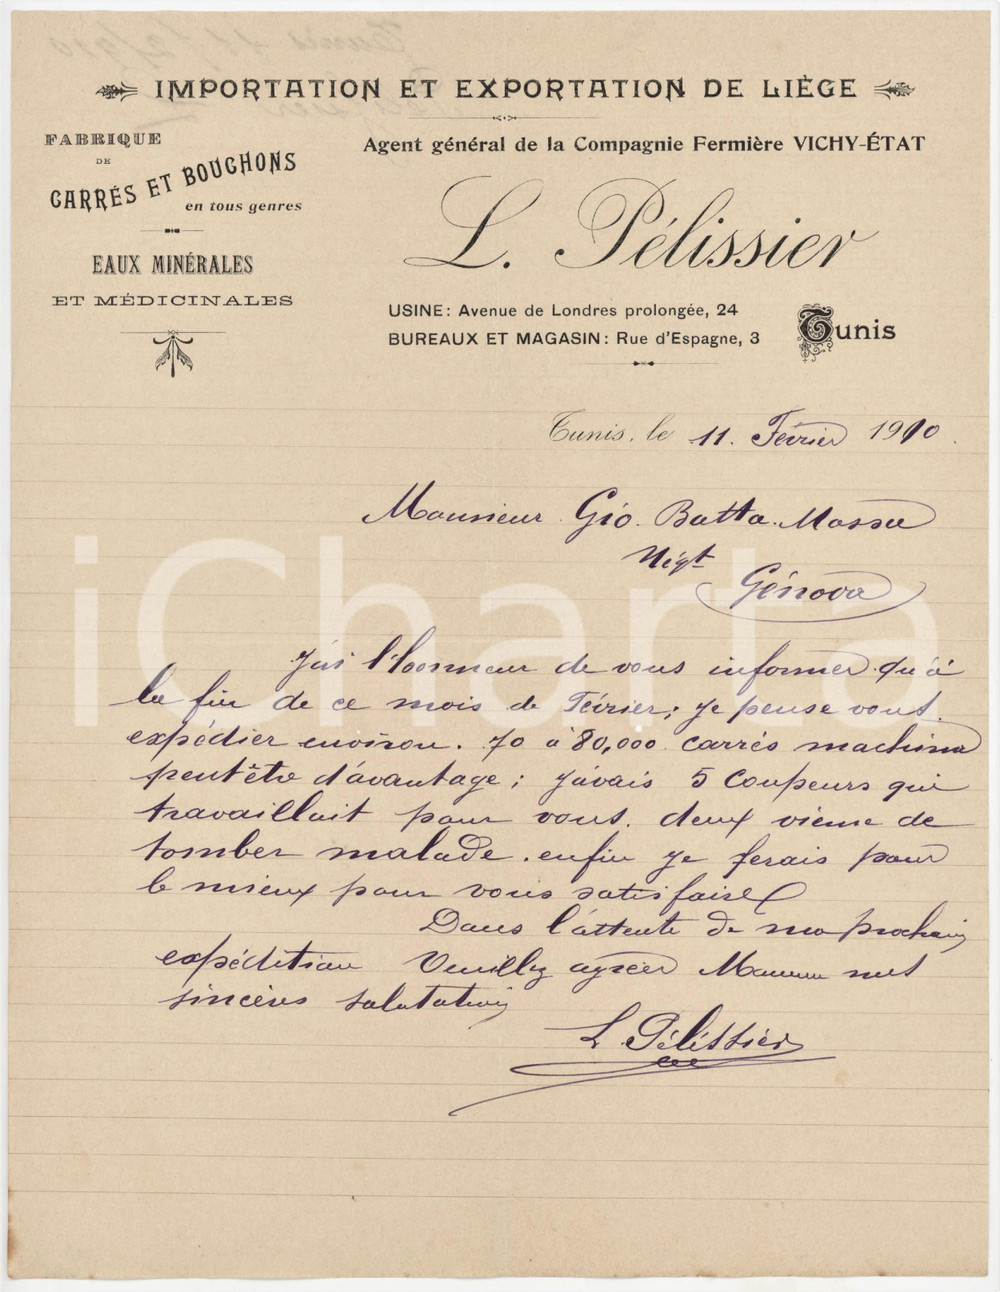 IMPORTATION ET EXPORTATION DE LIÈGE
FABRIQUE
DE
CARRÉS ET BOUCHONS
en tous genres
EAUX MINÉRALES
ET MÉDICINALES
Agent général de la Compagnie Fermière VICHY-ÉTAT
L. Pélissier
USINE: Avenue de Londres prolongée, 24
BUREAUX ET MAGASIN: Rue d'Espagne, 3
Tunis
Tunis, le 11. Février 1910.
Monsieur Gio. Batta. Massa
Négt
Génova
J'ai l'honneur de vous informer qu'à
la fin de ce mois de Février; je pense vous
expédier environ. 70 à 80,000 carrés machine
peut être d'avantage; j'avais 5 coupeurs qui
travaillait pour vous. deux vienne de
tomber malade. enfin je ferais pour
le mieux pour vous satisfaire
Dans l'attente de ma prochain
expédition Veuillez agréer Monsieur mes
sincères salutation
L. Pélissier
iCharta